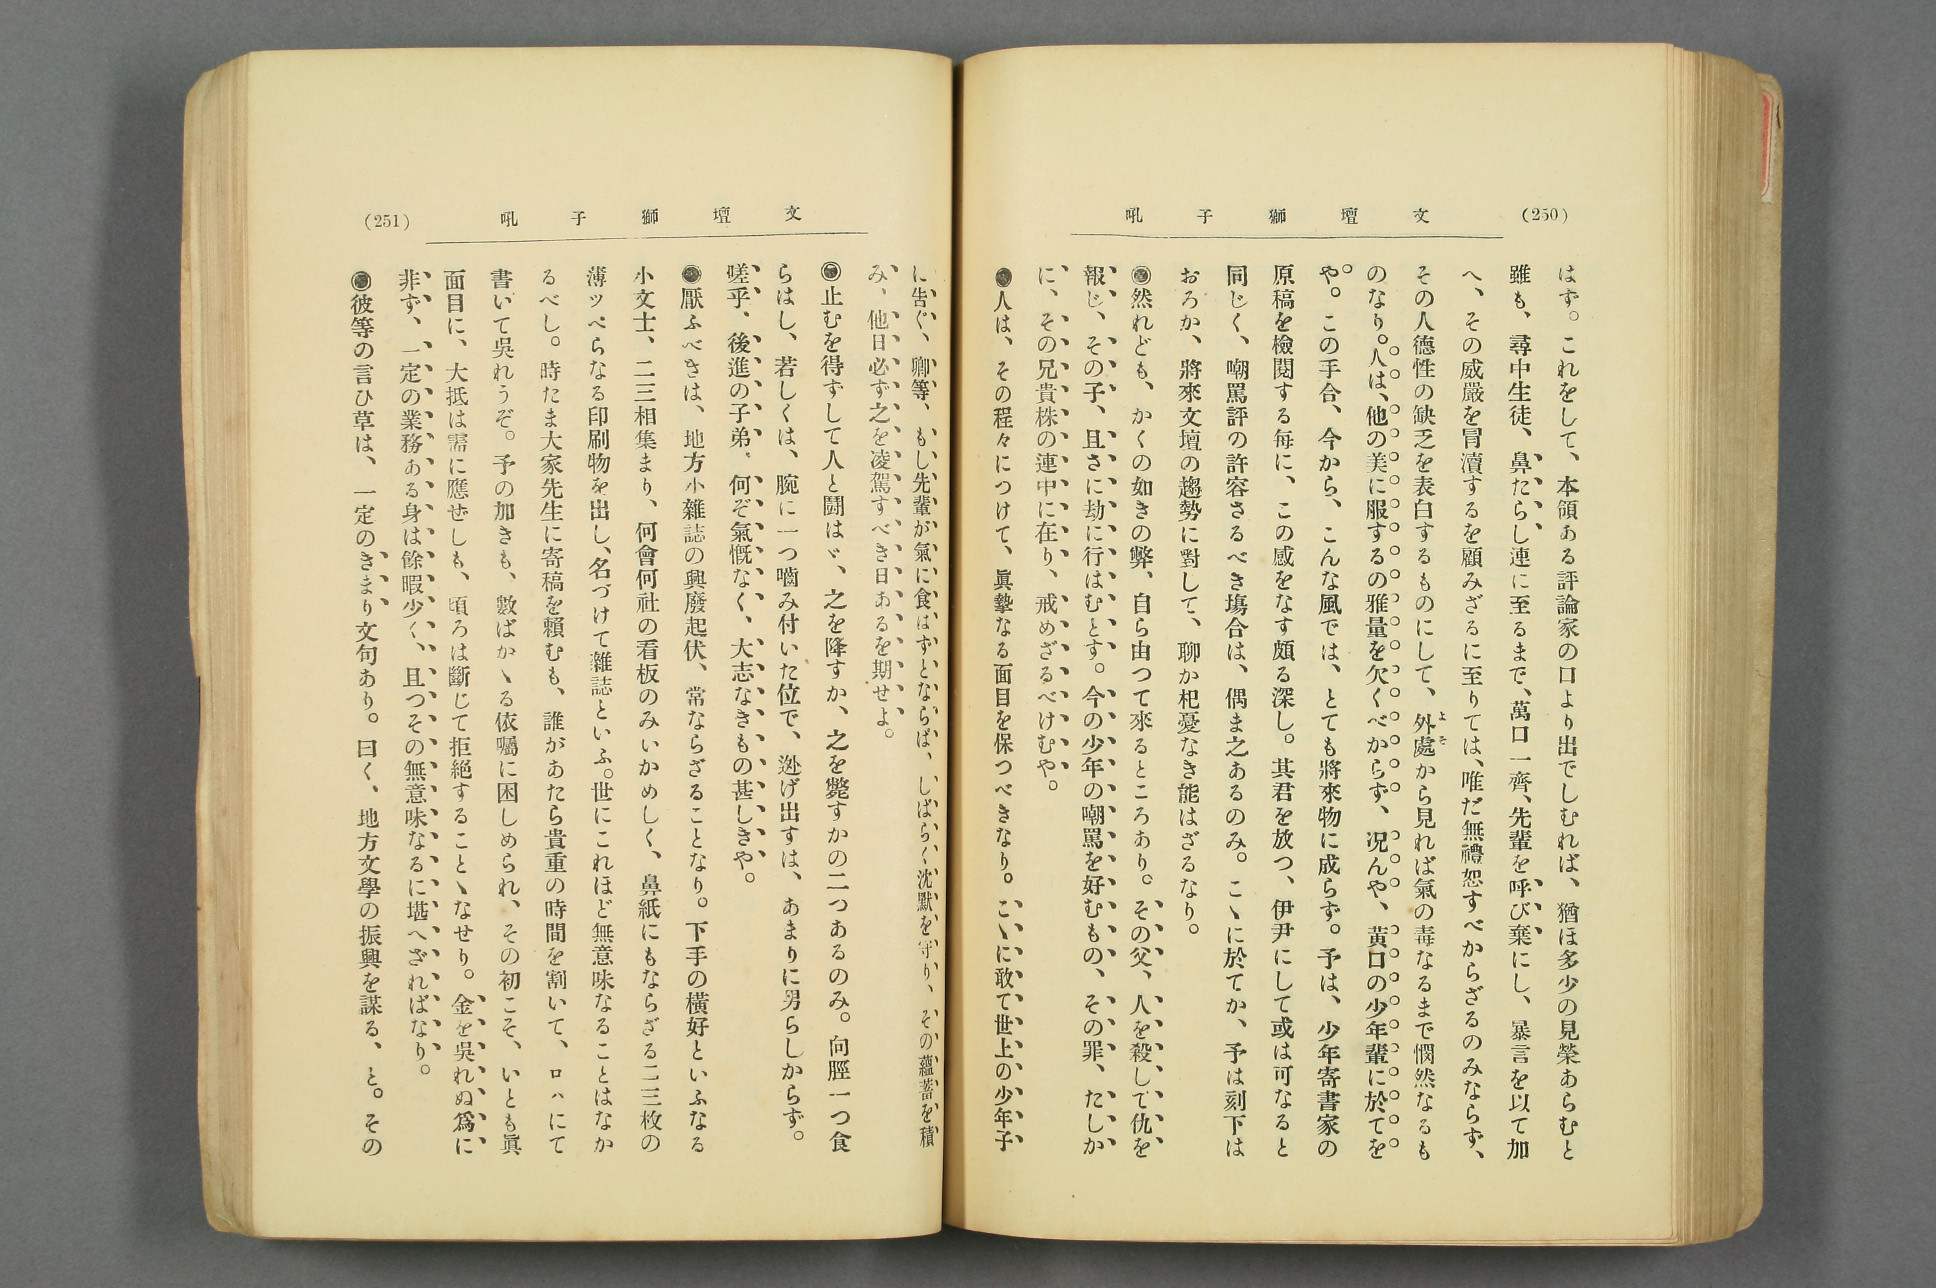 (250)
文壇獅子吼
はず。これをして、本領ある評論家の口より出でしむれば、猶ほ多少の見榮あらむと
雖も、尋中生徒、鼻たらし連に至るまで、萬口一齊、先輩を呼び棄にし、暴言を以て加
へ、その威嚴を冐瀆するを顧みざるに至りては、唯だ無禮恕すべからざるのみならず、
その人德性の缺乏を表白するものにして、外處から見れば氣の毒なるまで憫然なるも
よそ
のなり。人は、他の美に服するの雅量を欠くべからず、况んや、黃口の少年輩に於てを
や。この手合、今から、こんな風では、とても將來物に成らず。予は、少年寄書家の
原稿を檢閱する每に、この感をなす頗る深し。其君を放つ、伊尹にして或は可なると
同じく、嘲罵評の許容さるべき塲合は、偶ま之あるのみ。こヽに於てか、予は刻下は
おろか、將來文壇の趨勢に對して、聊か杞憂なき能はざるなり。
◉然れども、かくの如きの弊、自ら由つて來るところあり。その父、人を殺して仇を
報じ、その子、且さに劫に行はむとす。今の少年の嘲罵を好むもの、その罪、たしか
に、その兄貴株の連中に在り、戒めざるべけむや。
◉人は、その程々につけて、眞摯なる面目を保つべきなり。こヽに敢て世上の少年子
(251)
文壇獅子吼
に告ぐ、卿等、もし先輩が氣に食はずとならば、しばらく沈默を守り、その蘊蓄を積
み、他日必ず之を凌駕すべき日あるを期せよ。
◉止むを得ずして人と鬪はゞ、之を降すか、之を斃すかの二つあるのみ。向脛一つ食
らはし、若しくは、腕に一つ嚙み付いた位で、逃げ出すは、あまりに男らしからず。
嗟乎、後進の子弟、何ぞ氣慨なく、大志なきもの甚しきや。
◉厭ふべきは、地方小雜誌の興廢起伏、常ならざることなり。下手の橫好といふなる
小文士、二三相集まり、何會何社の看板のみいかめしく、鼻紙にもならざる二三枚の
薄ッぺらなる印刷物を出し、名づけて雜誌といふ。世にこれほど無意味なることはなか
るべし。時たま大家先生に寄稿を賴むも、誰があたら貴重の時間を割いて、ロハにて
書いて吳れうぞ。予の加きも、數ばかヽる依囑に困しめられ、その初こそ、いとも眞
面目に、大抵は需に應ぜしも、頃ろは斷じて拒絶することヽなせり。金を吳れぬ爲に
非ず、一定の業務ある身は餘暇少く、且つその無意味なるに堪へざればなり。
◉彼等の言ひ草は、一定のきまり文句あり。曰く、地方文學の振興を謀る、と。その